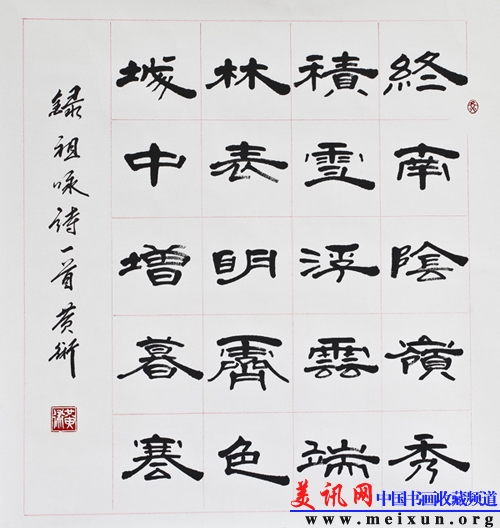 終南陰嶺秀
積雪浮雲端
林表明霽色
城中增暮寒
録祖咏詩一首黄
美讯网 中国书画收藏频道
www.meixun.org